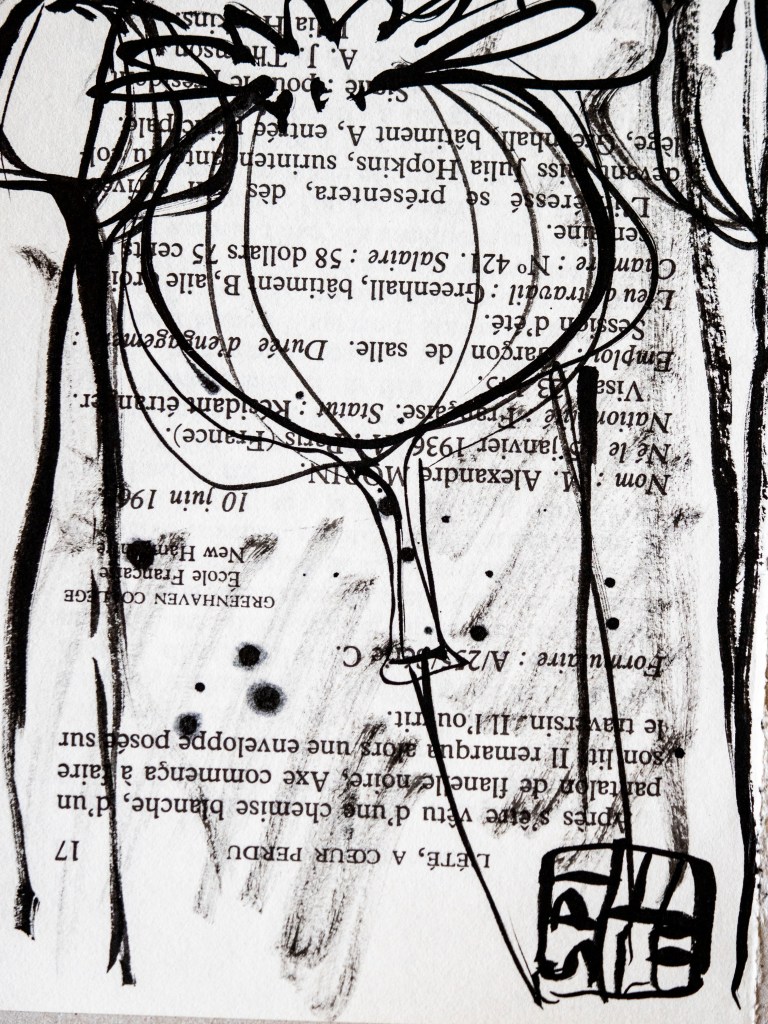 L'ÉTÉ, A CŒUR PERDU 17
Après s'être vêtu d'une chemise blanche, d'un
pantalon de flanelle noire, Axe commença à faire
son lit. Il remarqua alors une enveloppe posée sur
le traversin. Il l'ouvrit.
Formulaire : Série C.
GREENHAVEN COLLEGE
École Française
New Hampshire
10 juin
Nom : M. Alexandre MORIN.
Né le janvier 1936 A : Paris (France).
Nationalité : Française. Statut : Résidant étranger.
Visa
Emploi : Garçon de salle. Durée d'engagement :
Session d'été.
Lieu de travail : Greenhall, bâtiment B, aile droi
Chambre : N° 421. Salaire : 58 dollars 75 cents
semaine.
L'intéressé se présentera, dès son arrivé
devant Miss Julia Hopkins, surintendante du col-
lège, Greenhall, bâtiment A, entrée principale.
Signé : pour le
A. J. Thomson
Julia Hopkins.
SPI